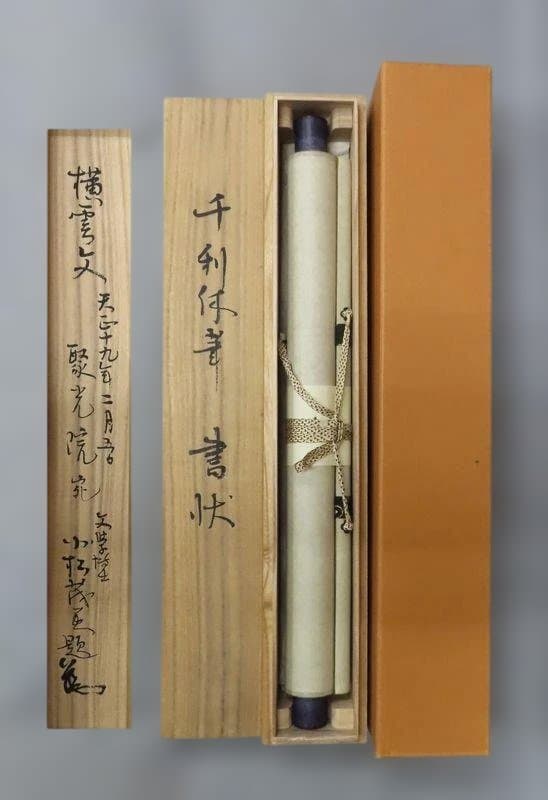 千利休筆 書状
横雲文
天正十九年二月五日
聚光院宛
文学博士
小松茂美題